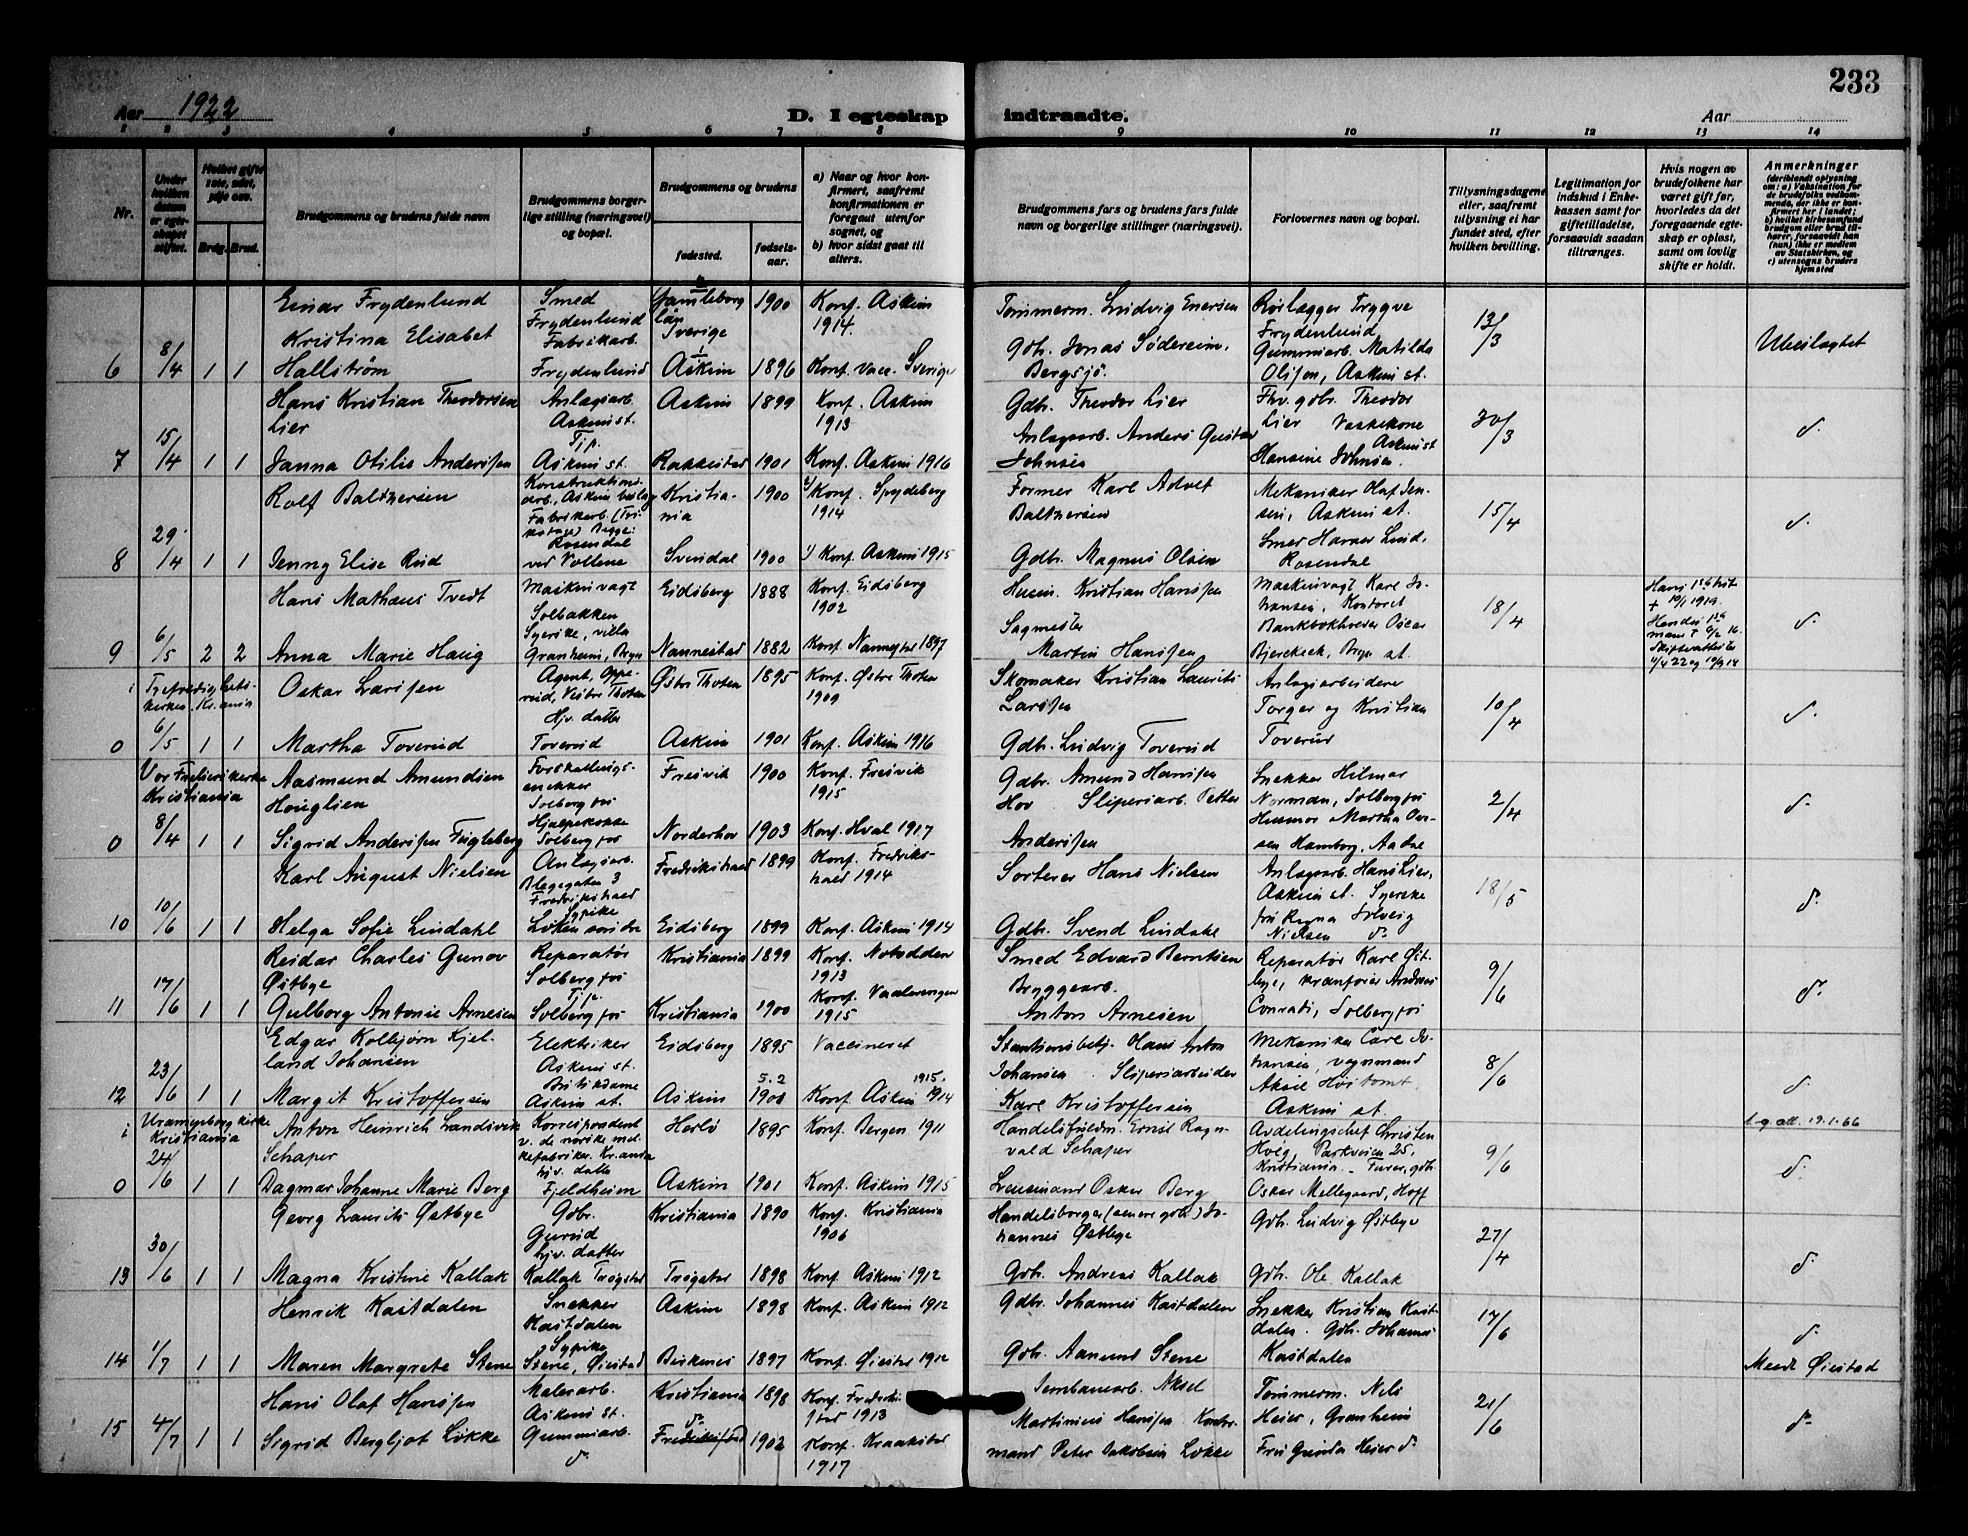 233
Aar 1922
D. I egteskap indtraadte.
Aar
1 2 3 4 5 6 7 8 9 10 11 12 13 14
Nr.
Under hvilken datum er egteskapet stiftet.
Hvilket gifte 1ste, 2det, 3dje osv.
Brdg. Brud.
Brudgommens og brudens fulde navn
Brudgommens borgerlige stilling (næringsvei) og bopæl.
Brudgommens og brudens
fødested.
fødselsaar.
a) Naar og hvor konfirmert, saafremt konfirmationen er foregaut utenfor sognet, og
b) hvor sidst gaat til alters.
Brudgommens fars og brudens fars fulde navn og borgerlige stillinger (næringsvei).
Forlovernes navn og bopæl.
Tillysningsdagene eller, saafremt tillysning ei har fundet sted, efter hvilken bevilling.
Legitimation for indskud i Enkekassen samt for giftetilladelse, forsaavidt saadan tiltrænges.
Hvis nogen av brudefolkene har været gift før, hvorledes da det foregaaende egteskap er opløst, samt om lovlig skifte er holdt.
Anmerkninger (deriblandt oplysning om: a) Vaksination for de brudefolks vedkommende, der ikke er konfirmert her i landet; b) hvilket kirkesamfund brudgom eller brud tilhører, forsaavidt han (hun) ikke er medlem av Statskirken, og c) utensogns bruders hjemsted
Einar Frydenlund Smed Frydenlund län Sverige 1900 Konf. Askim 1914. Tømmerm. Ludvig Enersen Rørlægger Trygve Frydenlund 13/3 Ubeslægtet
6 8/4 1 1 Kristina Elisabet Hallstrøm Fabrikarb. Frydenlund Askim 1896 Konf. vacc. Sverige Gdb. Jonas Bergsjö. Gummiarb. Matilda Olsen, Askim st.
Hans Kristian Theodorsen Lier Anlægsarb. Askim st. Askim 1899 Konf. Askim 1913 Gdbr. Theodor Lier Fhv. gdbr. Theodor Lier 30/3 d.
7 15/4 1 1 Janna Otilie Andersen Tj.p. Askim st. Rakkestad 1901 Konf. Askim 1916 Anlægsarb. Anders Gustav Johnsen Vaskekone Hansine Johnsen. Askim st
Rolf Baltzersen Konstruktionsarb., Askim Kristiania 1900 Konf. Spydeberg 1914 Former Karl Adolf Baltzersen Mekaniker Olaf Jensen, Askim st. 15/4 d.
8 29/4 1 1 Jenny Elise Rud Fabrikarb. Begge: Rosendal ved Vollene Svendal 1900 Konf. Askim 1915 Gdbr. Magnus Olsen Lind, Rosendal
Hans Mathæus Tvedt Maskinvagt Solbakken Eidsberg 1888 Konf. Eidsberg 1902 Husm. Kristian Hansen Maskinvagt Karl Johansen, Kontoret 18/4 Hans 1ste hustr + 10/1 1919. Hendes 1ste mand + 9/2 16. Skifteattester 4/4 22 og 19/9 19 d.
9 6/5 2 2 Anna Marie Haug Syerske, villa Granheim, Bryn Nannestad 1882 Konf. Nannestad 1897 Sagmester Martin Hansen Bankbokholder Oscar Bjerckeek, Bryn st.
i Trefoldighetskirken, Kr.ania Oskar Larsen Agent, Opperud, Vestre Thoten Østre Thoten 1895 Konf. Østre Thoten 1909 Skomaker Kristian Laurits Larsen Anlægsarbeidere Torger og Kristian Toverud 10/4 d.
0 6/5 1 1 Martha Toverud Hjv. datter Toverud Askim 1901 Konf. Askim 1916 Gdb. Ludvig Toverud
Vor Frelsers kirke Kristiania Aasmund Amundsen Houglien Forskallingssnekker Solbergfos 1900 Konf. 1915 Gdbr. Amund Hansen Hov Snekker Hilmar Norman, Solbergfos 2/4 d.
0 8/4 1 1 Sigrid Andersen Fugleberg Hjælpekokke Solbergfos Norderhov 1903 Konf. Hval 1917 Sliperiarb. Petter Andersen Husmor Martha Hamborg, Aadal
Karl August Nielsen Anlægsarb. Blegegaten 3 Fredrikshald Fredrikshald 1899 Konf. Fredrikshald 1914 Sorterer Hans Nielsen Anlægsarb. Hans Lier, Askim st. 18/5 d.
10 10/6 1 1 Helga Sofie Lindahl Sypike Løken søndre Eidsberg 1899 Konf. Askim 1914 Gdb. Svend Lindahl Syerske frk Ragna Solveig Nielsen d.
Reidar Charles Gunov Østbye Reparatør Solbergfos Kristiania 1899 Konf. Notodden 1913 Smed Edvard Berntsen Reparatør Karl Østbye, 9/6 d.
11 17/6 1 1 Gulborg Antonie Arnesen Tj.p. Solbergfos Kristiania 1900 Konf. Vaalerengen 1915 Bryggearb. Anton Arnesen kranfører Andreas Conradi, Solbergfos
Edgar Kolbjørn Kjelland Johansen Elektriker Askim st. Eidsberg 1895 Vaccineret Stasionsbetj. Hans Anton Johansen Mekaniker Carl Johansen, 8/6 d.
12 23/6 1 1 Margit Kristoffersen Butikdame Askim st. Askim 5.2 1900 Konf. Askim 1914 1915. Sliperiarbeider Karl Kristoffersen vognmand Aksel Høitomt. Askim st.
i Uranienborg kirke Kristiania Anton Heinrich Landsvik Schaper Korrespondent v. de norske melkefabriker. Kr.ania Herlø 1895 Konf. Bergen 1911 Handelsfuldm. Ernst Ragnvald Schaper Avdelingschef Christen Høeg, Parkveien 25, Kristiania. 9/6 l.g.att. 19.1.66 d.
0 24/6 1 1 Dagmar Johanne Marie Berg hjv. datter Fjeldheim Askim 1901 Konf. Askim 1915 Lensmand Oskar Berg Furer, gdb. Oskar Mellegaard, Hoff
Georg Laurits Østbye Gdbr. Gurud Kristiania 1890 Konf. Kristiania 1906 Handelsborger (senere gdb.) Johannes Østbye Gdb. Ludvig Østbye 27/4 d.
13 30/6 1 1 Magna Kristine Kallak hjv. datter Kallak Trøgstad Trøgstad 1898 Konf. Askim 1912 Gdb. Andreas Kallak Gdb. Ole Kallak
Henrik Kastdalen Snekker Kastdalen Askim 1898 Konf. Askim 1912 Gdbr. Johannes Kastdalen Snekker Kristian Kastdalen. 17/6 d.
14 1/7 1 1 Maren Margrete Stene Sypike Stene, Øiestad Birkenes 1897 Konf. Øiestad 1912 Gdb. Aanund Stene Gdb. Johannes Kastdalen Øiestad
Hans Olaf Hansen Malerarb. Askim st. Kristiania 1898 Konf. Fredrikstad 1913 Jernbanearb. Aksel Martinius Hansen Tømmerm. Nils Heier, Granheim 21/6 d.
15 4/7 1 1 Sigrid Bergljot Løkke Gummiarb. d. d. 1902 Konf. Kraakstad 1917 Peter Jakobsen Løkke Fru Gunda Heier d.